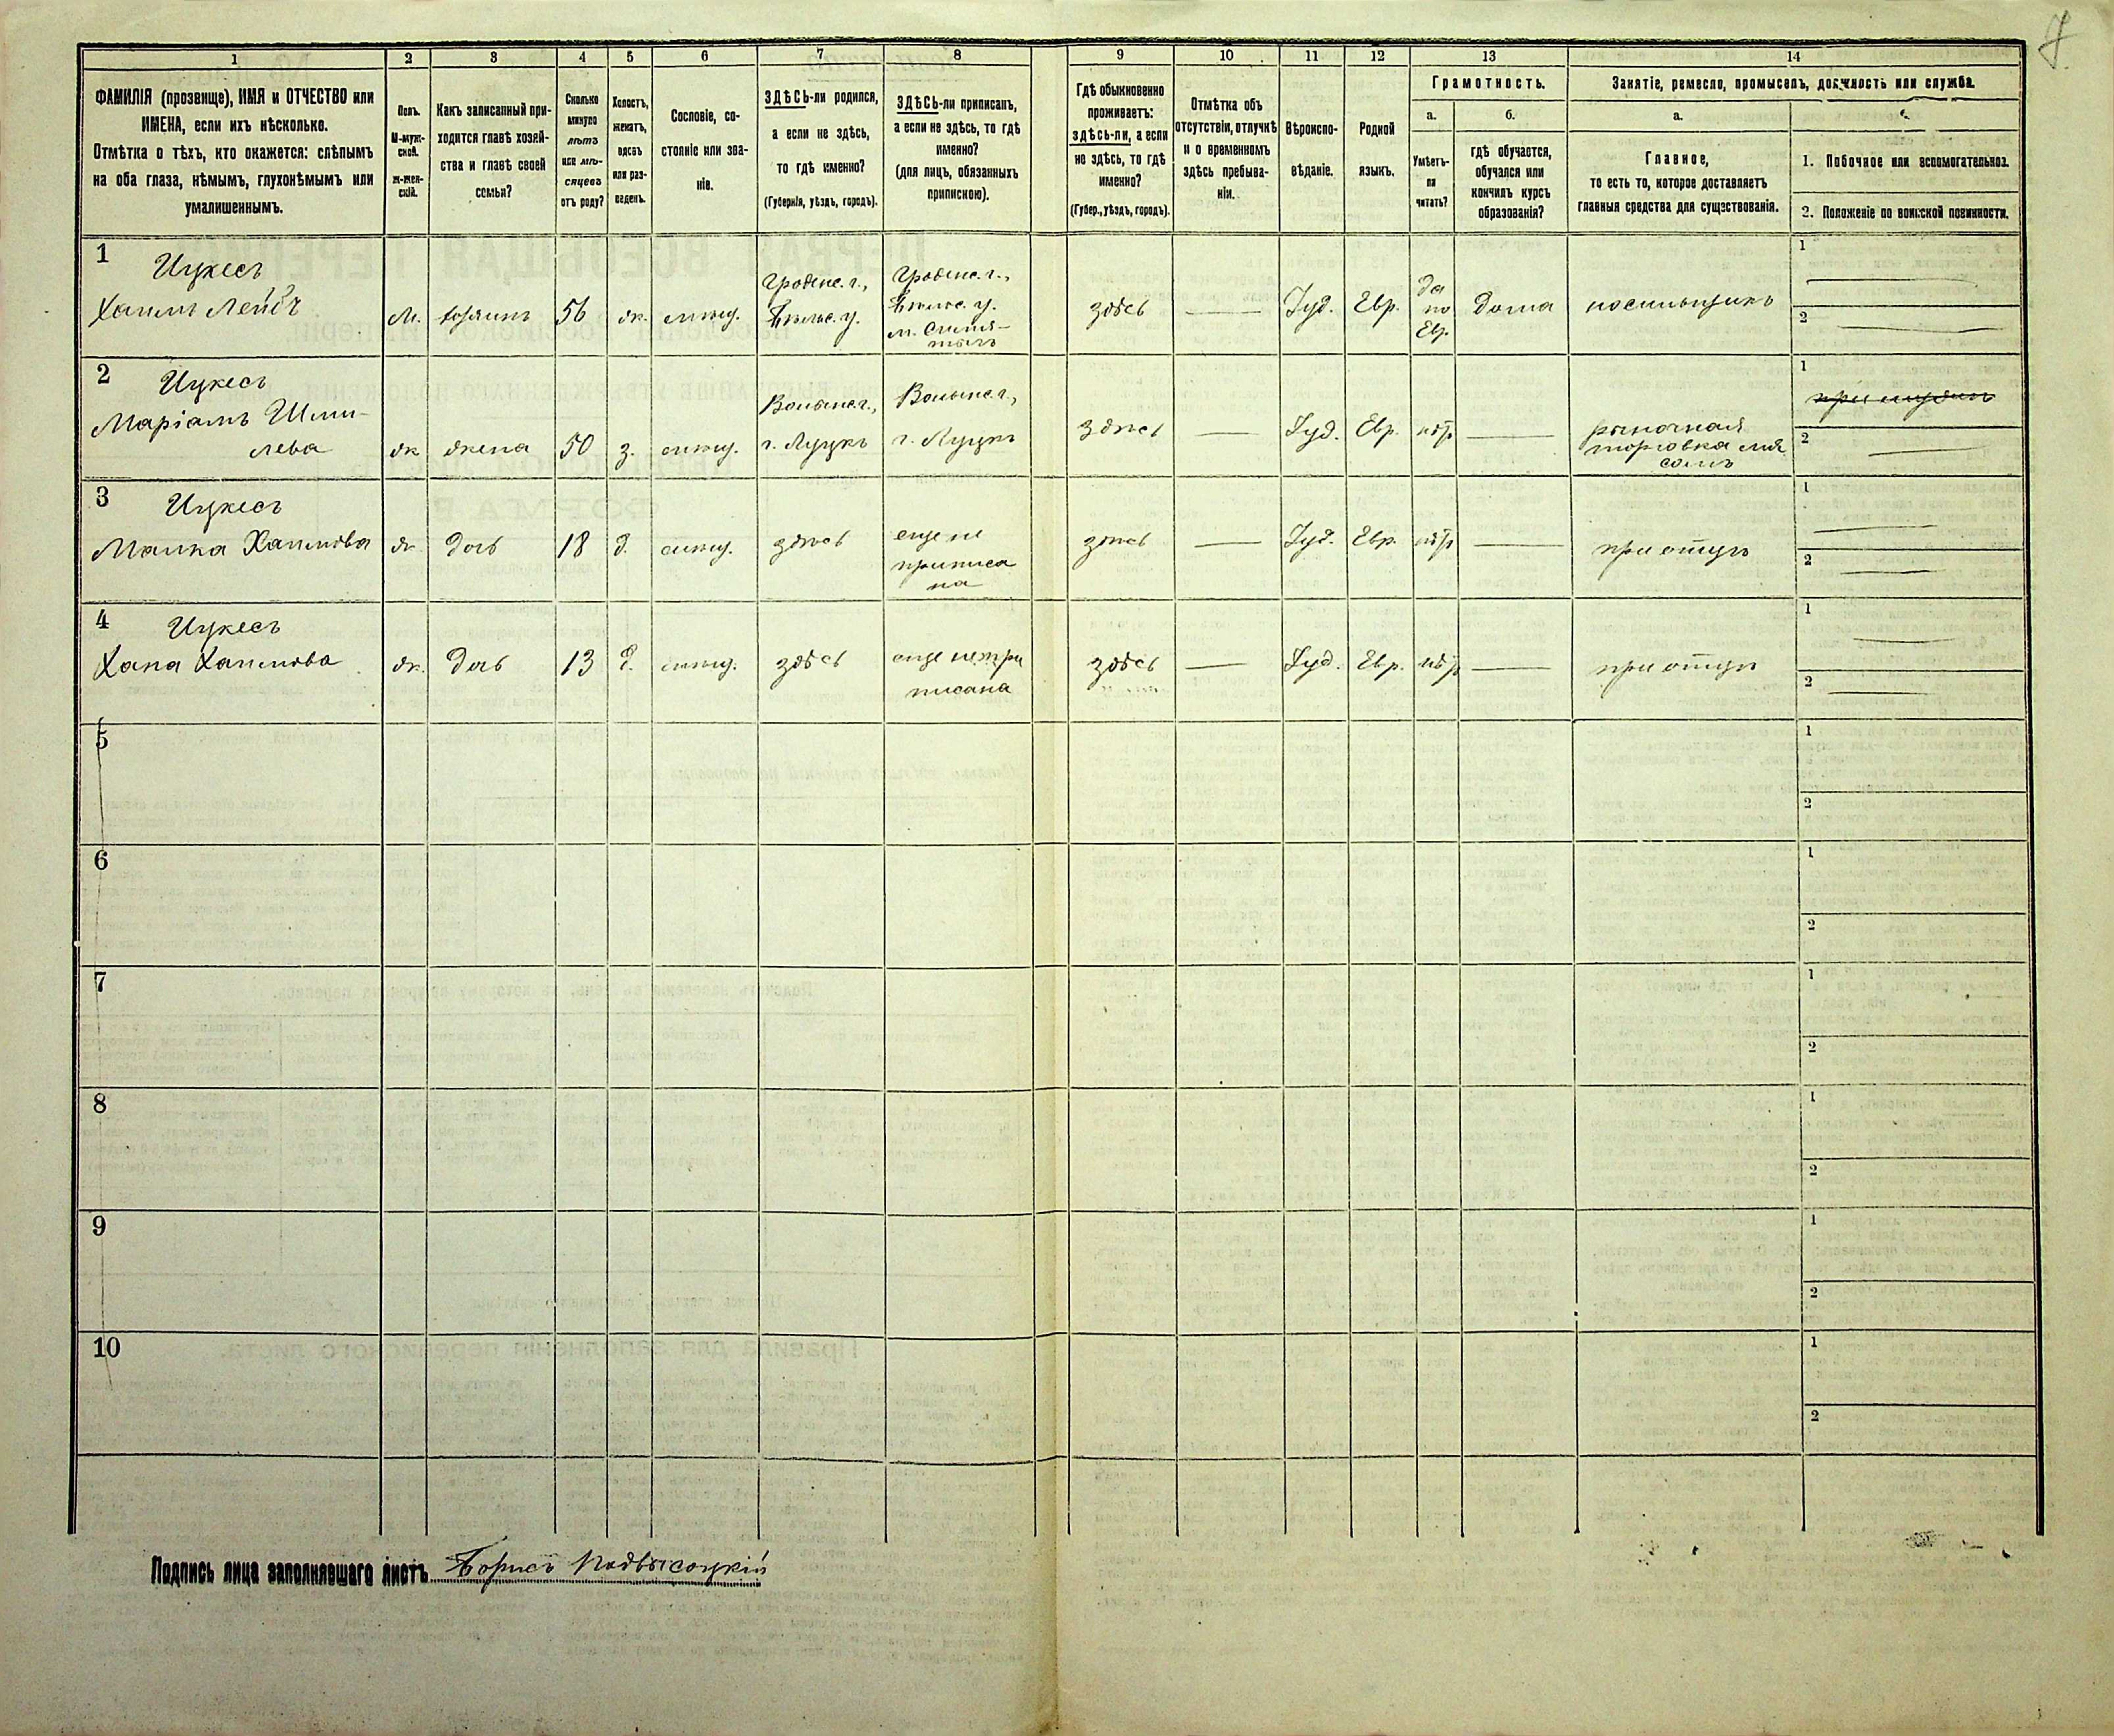 1 2 3 4 5 6 7 8 9 10 11 12 13 14
ФАМИЛІЯ (прозвище), ИМЯ и ОТЧЕСТВО или
ИМЕНА, если ихъ нѣсколько.
Отмѣтка о тѣхъ, кто окажется: слѣпымъ
на оба глаза, нѣмымъ, глухонѣмымъ или
умалишеннымъ.
Полъ.
М-муж-
ской.
ж-жен-
скій.
Какъ записанный при-
ходится главѣ хозяй-
ства и главѣ своей
семьи?
Сколько
минуло
лѣтъ
или мѣ-
сяцевъ
отъ роду?
Холостъ,
женатъ,
вдовъ
или раз-
веденъ.
Сословіе, со-
стояніе или зва-
ніе.
ЗДѢСЬ-ли родился,
а если не здѣсь,
то гдѣ именно?
(Губернія, уѣздъ, городъ).
ЗДѢСЬ-ли приписанъ,
а если не здѣсь, то гдѣ
именно?
(для лицъ, обязанныхъ
припискою).
Гдѣ обыкновенно
проживаетъ:
здѣсь-ли, а если
не здѣсь, то гдѣ
именно?
(Губер., уѣздъ, городъ).
Отмѣтка объ
отсутствіи, отлучкѣ
и о временномъ
здѣсь пребыва-
ніи.
Вѣроиспо-
вѣданіе.
Родной
языкъ.
Грамотность.
а.
Умѣетъ-
ли
читать?
б.
гдѣ обучается,
обучался или
кончилъ курсъ
образованія?
Занятіе, ремесло, промыселъ, должность или служба.
а.
Главное,
то есть то, которое доставляетъ
главныя средства для существованія.
1. Побочное или вспомогательное.
2. Положеніе по воинской повинности.
1
Цукесъ
Хаимъ Лейб
М. хозяинъ 56 ж. мѣщ.
Гроднс. г.,
Бѣльс. у.
Гроднс. г.,
Бѣльс. у.
м. Семя-
тычъ
здѣсь — Іуд. Евр.
да
по
Евр.
дома носильщикъ
1
2
2
Цукесъ
Маріамъ Шми-
лева
ж жена 50 з. мѣщ.
Волынс. г.,
г. Луцкъ
Волынс. г.,
г. Луцкъ
здѣсь — Іуд. Евр. нѣт —
рыночная
торговка мя
сомъ
1
2
3
Цукесъ
Малка Хаимова
ж. дочь 18 д. мѣщ. здѣсь
еще не
приписа
на
здѣсь — Іуд. Евр. нѣт — при отцѣ
1
2
4
Цукесъ
Хана Хаимова
ж. дочь 13 д. мѣщ. здѣсь
еще не при
писана
здѣсь — Іуд. Евр. нѣт — при отцѣ
1
2
5
1
2
6
1
2
7
1
2
8
1
2
9
1
2
10
1
2
Подпись лица заполнявшаго листъ Борисъ Подвысоцкій